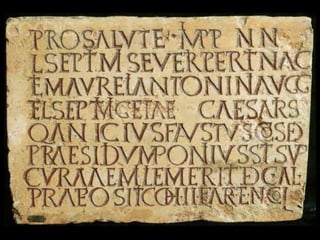 PRO SALVTE IMPP N N
L SEPTIMI SEVERI PERTINAC
E M AVRELI ANTONINI AVGG
ET L SEPTIMI GETAE CAESARIS
Q ANICIVS FAVSTVS COS D
PRAESIDIVM PONI IVSSIT SV
CVRA AEMILI EMERITI DEC AL
PRAEPOSITI COH